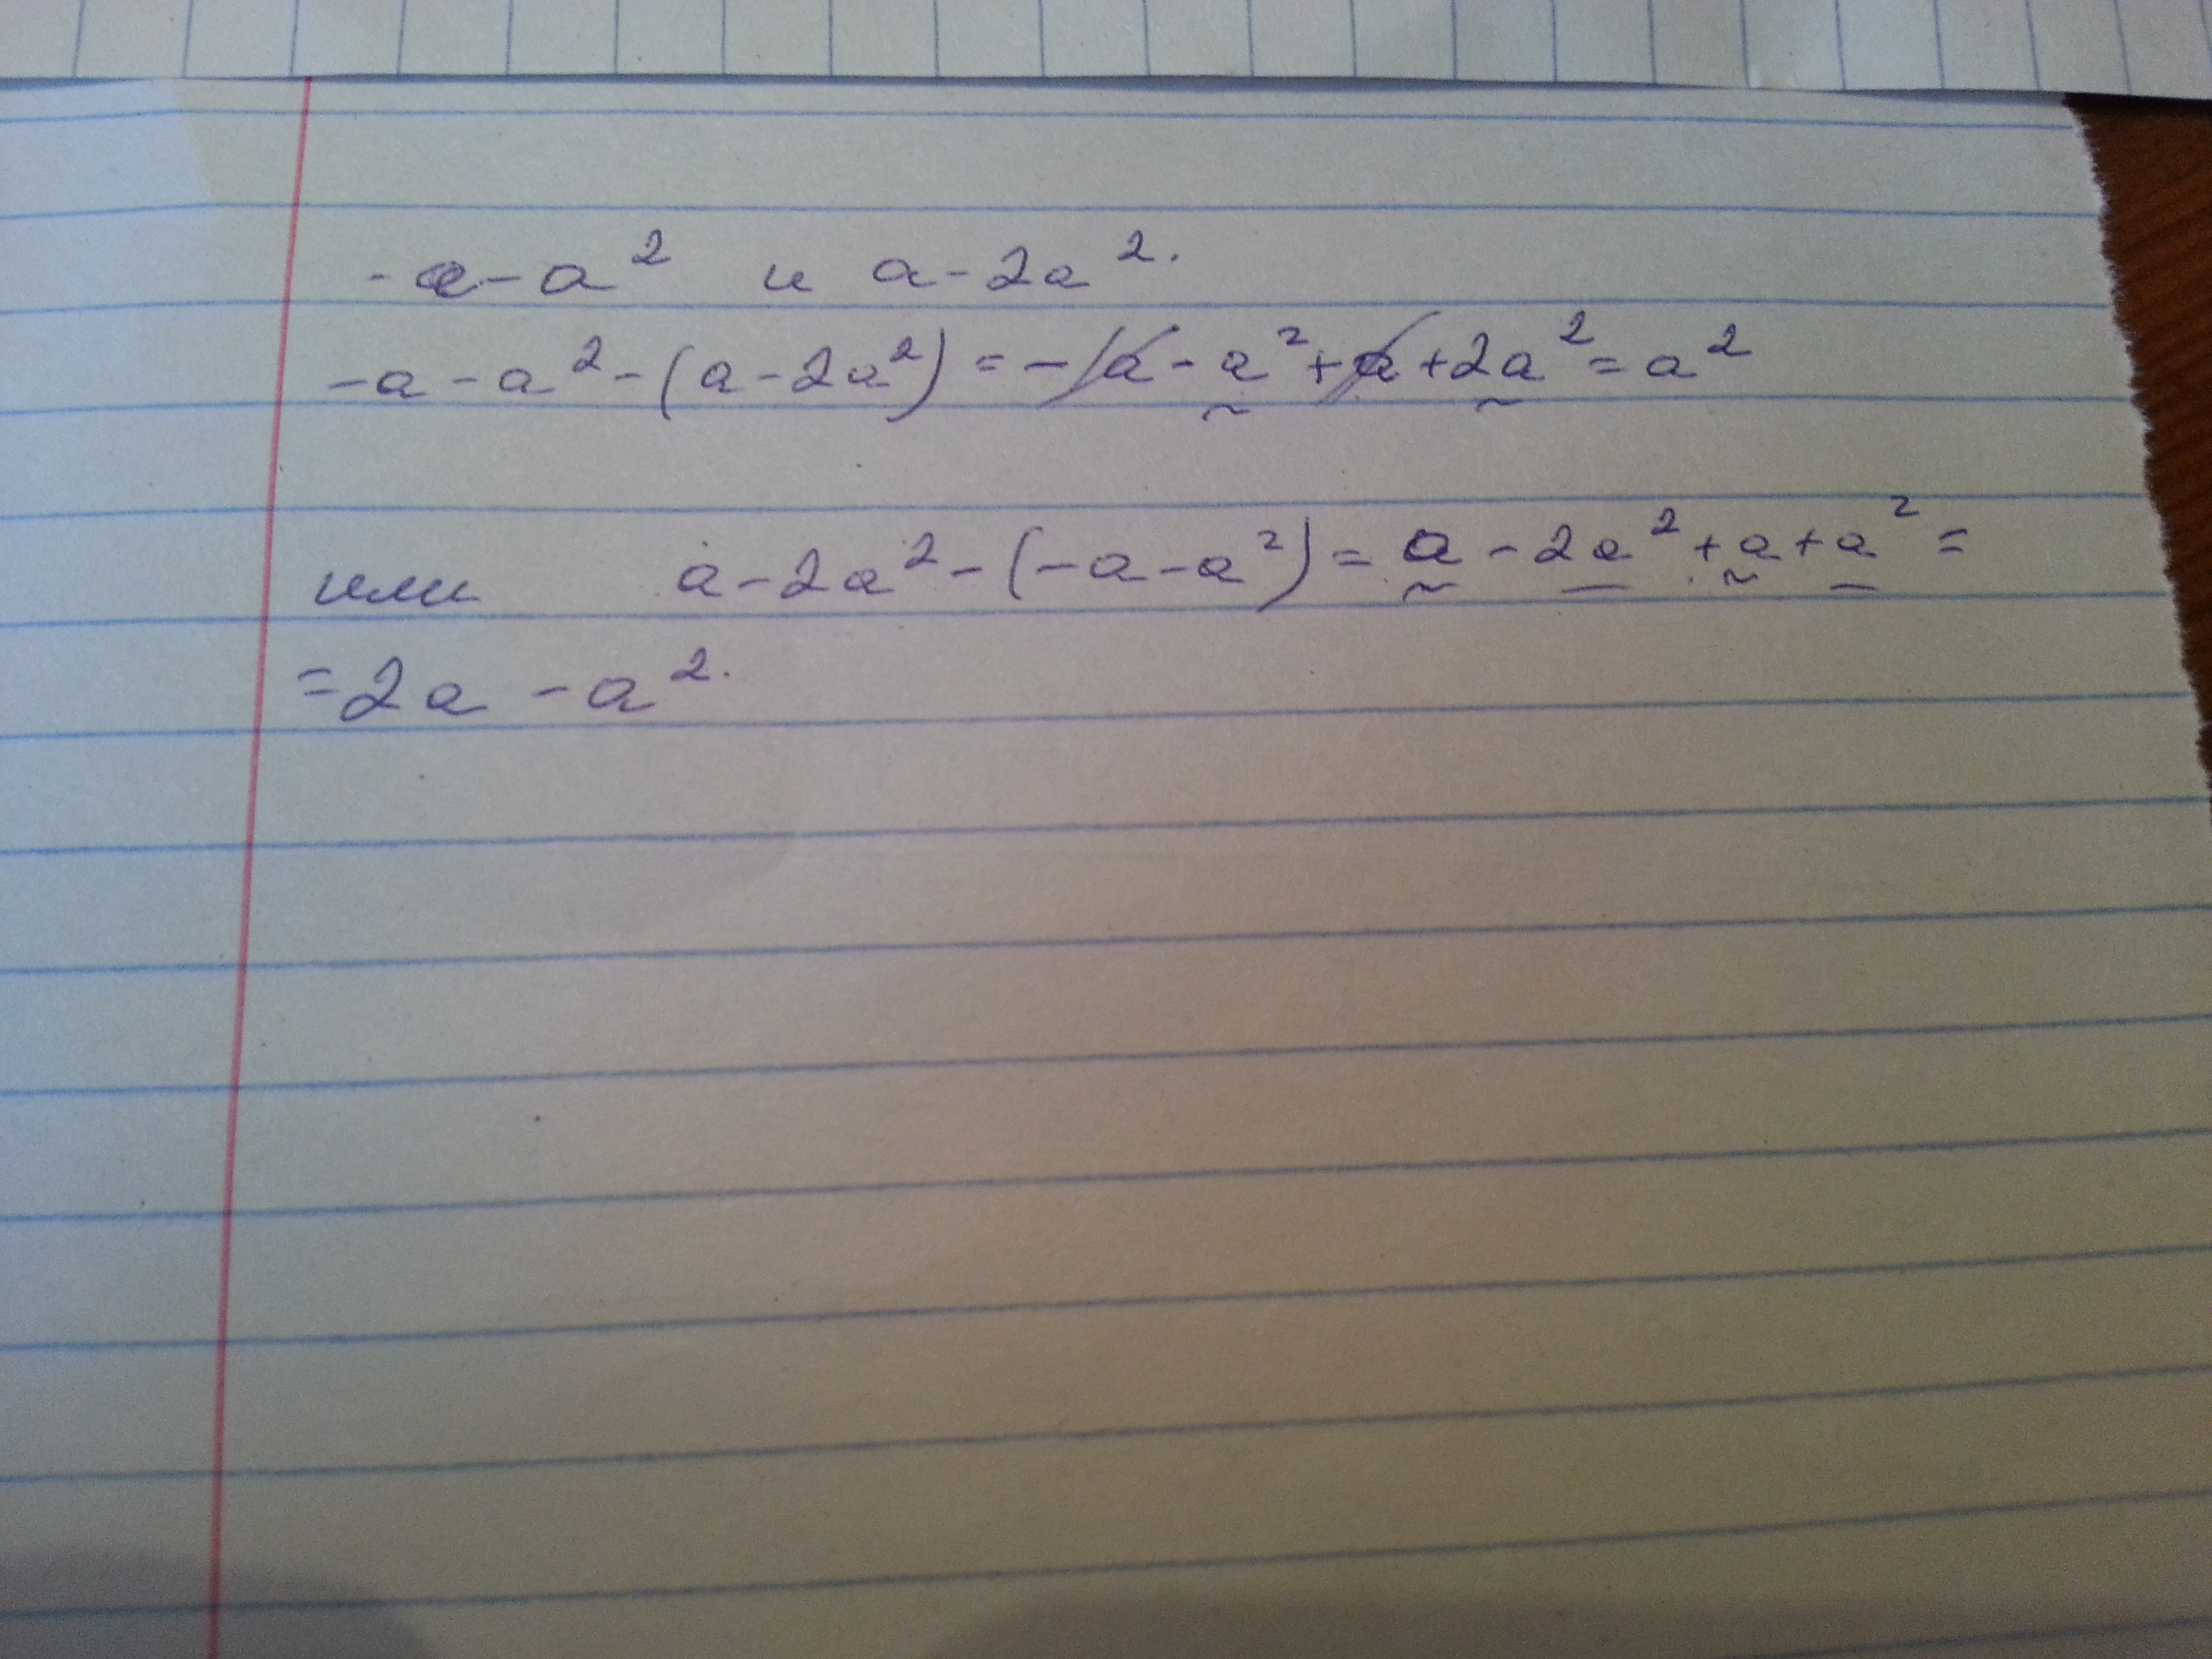 -a-a² и a-2a².
-a-a²-(a-2a²)=-a-a²+a+2a²=a²
или a-2a²-(-a-a²)=a-2a²+a+a²=
=2a-a².